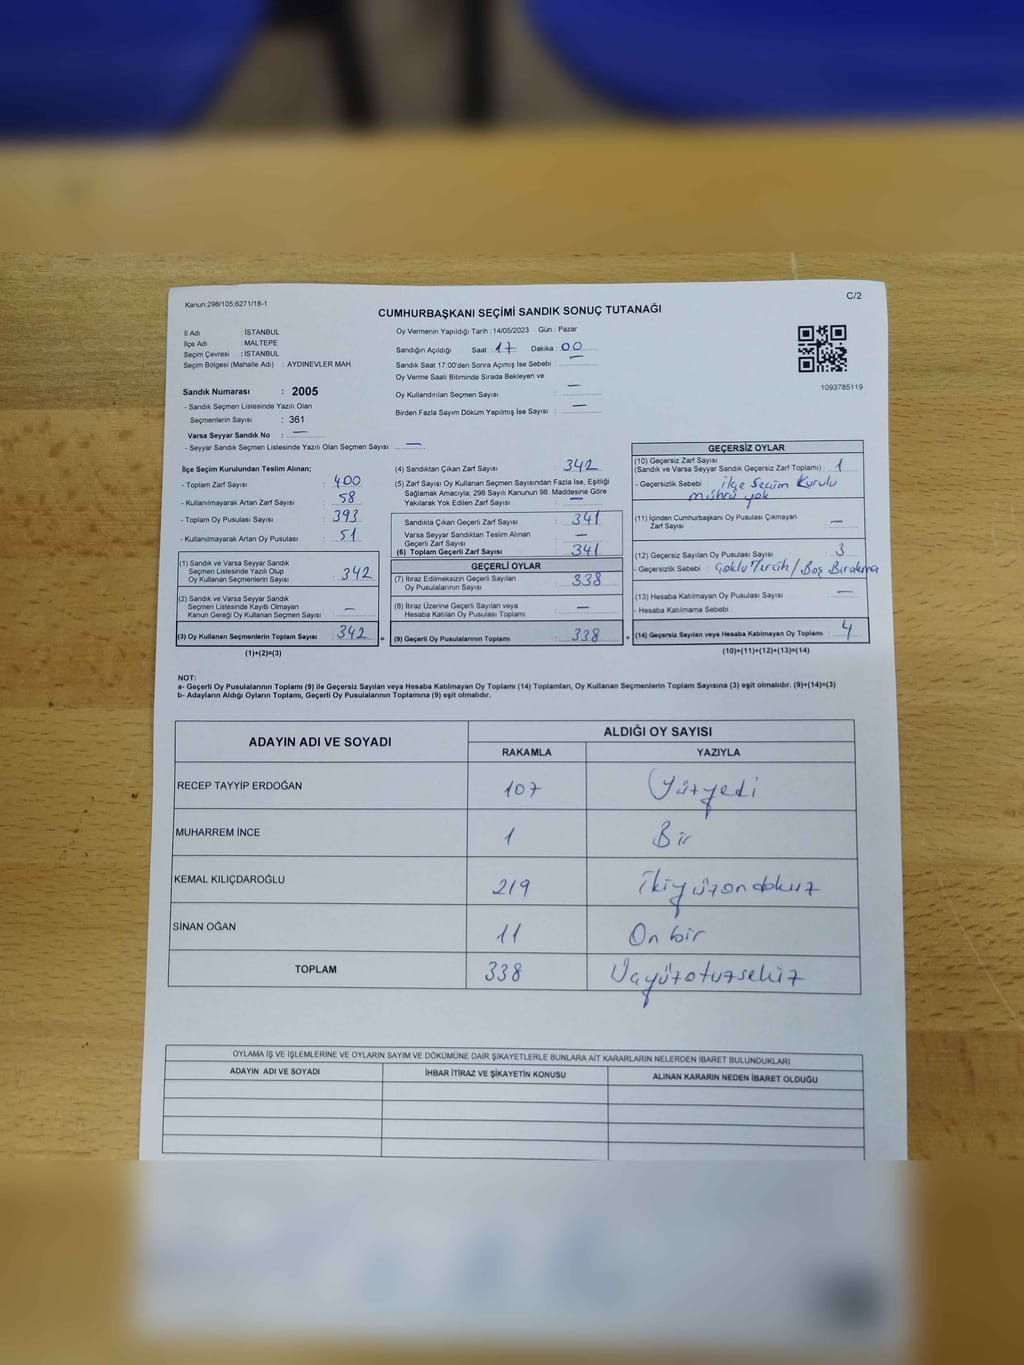 Kanun:298/105;6271/18-1
C/2
CUMHURBAŞKANI SEÇİMİ SANDIK SONUÇ TUTANAĞI
İl Adı : İSTANBUL
İlçe Adı : MALTEPE
Seçim Çevresi : İSTANBUL
Seçim Bölgesi (Mahalle Adı) : AYDINEVLER MAH.
Sandık Numarası : 2005
- Sandık Seçmen Listesinde Yazılı Olan
Seçmenlerin Sayısı : 361
Varsa Seyyar Sandık No : —
- Seyyar Sandık Seçmen Listesinde Yazılı Olan Seçmen Sayısı: —
Oy Vermenin Yapıldığı Tarih : 14/05/2023 Gün : Pazar
Sandığın Açıldığı Saat : 17 Dakika : 00
Sandık Saat 17:00'den Sonra Açımış İse Sebebi : —
Oy Verme Saati Bitiminde Sırada Bekleyen ve
Oy Kullandırılan Seçmen Sayısı : —
Birden Fazla Sayım Döküm Yapılmış İse Sayısı : —
1093785119
İlçe Seçim Kurulundan Teslim Alınan;
- Toplam Zarf Sayısı : 400
- Kullanılmayarak Artan Zarf Sayısı : 58
- Toplam Oy Pusulası Sayısı : 393
- Kullanılmayarak Artan Oy Pusulası : 51
(1) Sandık ve Varsa Seyyar Sandık
Seçmen Listesinde Yazılı Olup
Oy Kullanan Seçmenlerin Sayısı : 342
(2) Sandık ve Varsa Seyyar Sandık
Seçmen Listesinde Kayıtlı Olmayan
Kanun Gereği Oy Kullanan Seçmen Sayısı : —
(3) Oy Kullanan Seçmenlerin Toplam Sayısı : 342 =
(1)+(2)=(3)
(4) Sandıktan Çıkan Zarf Sayısı : 342
(5) Zarf Sayısı Oy Kullanan Seçmen Sayısından Fazla İse, Eşitliği
Sağlamak Amacıyla; 298 Sayılı Kanunun 98. Maddesine Göre
Yakılarak Yok Edilen Zarf Sayısı : —
Sandıkta Çıkan Geçerli Zarf Sayısı : 341
Varsa Seyyar Sandıktan Teslim Alınan
Geçerli Zarf Sayısı : —
(6) Toplam Geçerli Zarf Sayısı : 341
GEÇERLİ OYLAR
(7) İtiraz Edilmeksizin Geçerli Sayılan
Oy Pusulalarının Sayısı : 338
(8) İtiraz Üzerine Geçerli Sayılan veya
Hesaba Katılan Oy Pusulası Toplamı : —
(9) Geçerli Oy Pusulalarının Toplamı : 338 +
GEÇERSİZ OYLAR
(10) Geçersiz Zarf Sayısı
(Sandık ve Varsa Seyyar Sandık Geçersiz Zarf Toplamı) : 1
- Geçersizlik Sebebi : ilçe Seçim Kurulu
mührü yok
(11) İçinden Cumhurbaşkanı Oy Pusulası Çıkmayan
Zarf Sayısı : —
(12) Geçersiz Sayılan Oy Pusulası Sayısı : 3
- Geçersizlik Sebebi : Çoklu Tercih / Boş Bırakma
(13) Hesaba Katılmayan Oy Pusulası Sayısı : —
- Hesaba Katılmama Sebebi :
(14) Geçersiz Sayılan veya Hesaba Katılmayan Oy Toplamı : 4
(10)+(11)+(12)+(13)=(14)
NOT:
a- Geçerli Oy Pusulalarının Toplamı (9) ile Geçersiz Sayılan veya Hesaba Katılmayan Oy Toplamı (14) Toplamları, Oy Kullanan Seçmenlerin Toplam Sayısına (3) eşit olmalıdır. (9)+(14)=(3)
b- Adayların Aldığı Oyların Toplamı, Geçerli Oy Pusulalarının Toplamına (9) eşit olmalıdır.
ADAYIN ADI VE SOYADI ALDIĞI OY SAYISI
RAKAMLA YAZIYLA
RECEP TAYYİP ERDOĞAN 107 Yüzyedi
MUHARREM İNCE 1 Bir
KEMAL KILIÇDAROĞLU 219 İkiyüzondokuz
SİNAN OĞAN 11 On bir
TOPLAM 338 Üçyüzotuzsekiz
OYLAMA İŞ VE İŞLEMLERİNE VE OYLARIN SAYIM VE DÖKÜMÜNE DAİR ŞİKAYETLERLE BUNLARA AİT KARARLARIN NELERDEN İBARET BULUNDUKLARI
ADAYIN ADI VE SOYADI İHBAR İTİRAZ VE ŞİKAYETİN KONUSU ALINAN KARARIN NEDEN İBARET OLDUĞU